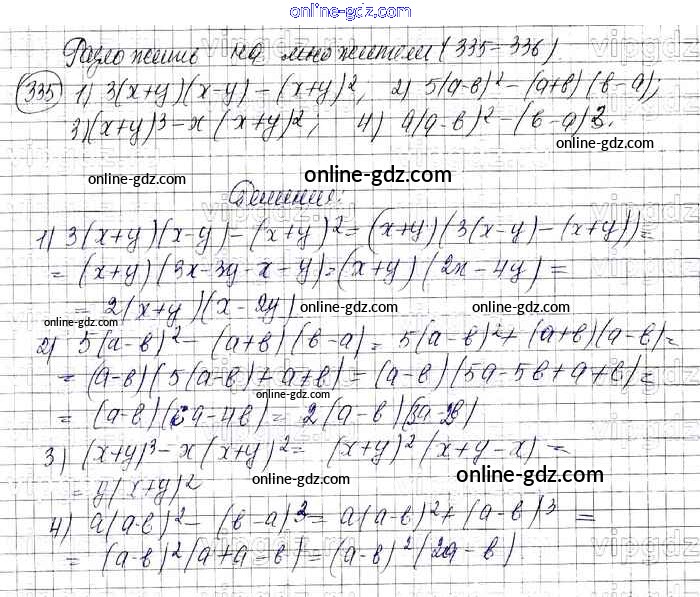 online-gdz.com
Разложить на множители (335-336)
335 1) 3(x+y)(x-y) - (x+y)², 2) 5(a-b)² - (a+b)(b-a);
3) (x+y)³ - x(x+y)²; 4) a(a-b)² - (b-a)³.
online-gdz.com online-gdz.com online-gdz.com
Решение:
1) 3(x+y)(x-y) - (x+y)² = (x+y)(3(x-y) - (x+y)) =
= (x+y)(3x-3y-x-y) = (x+y)(2x-4y) =
= 2(x+y)(x-2y)
online-gdz.com online-gdz.com online-gdz.com
2) 5(a-b)² - (a+b)(b-a) = 5(a-b)² + (a+b)(a-b) =
= (a-b)(5(a-b)+a+b) = (a-b)(5a-5b+a+b) =
online-gdz.com
= (a-b)(6a-4b) = 2(a-b)(3a-2b)
3) (x+y)³ - x(x+y)² = (x+y)²(x+y-x) =
= y(x+y)²
online-gdz.com online-gdz.com
4) a(a-b)² - (b-a)³ = a(a-b)² + (a-b)³ =
= (a-b)²(a+a-b) = (a-b)²(2a-b)